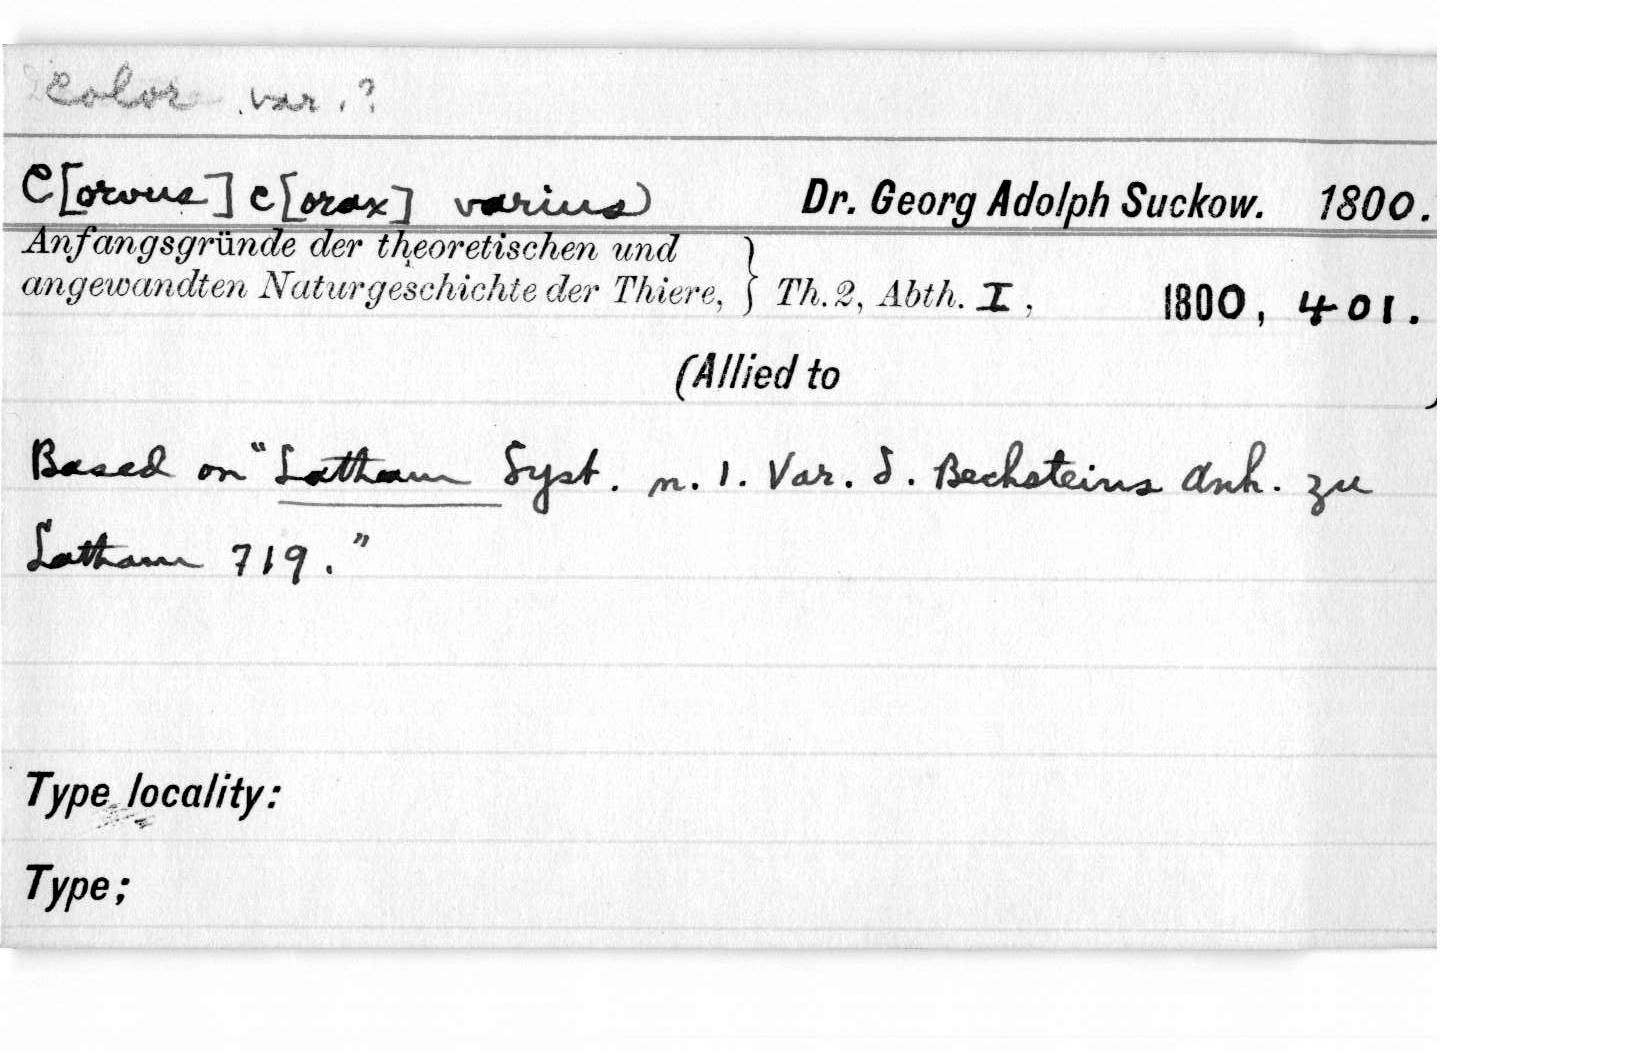 Color var.?
C[orvus] c[orax] varius) Dr. Georg Adolph Suckow. 1800.
Anfangsgründe der theoretischen und
angewandten Naturgeschichte der Thiere, } Th. 2, Abth. I, 1800, 401.
(Allied to )
Based on "Latham Syst. n. 1. Var. δ. Bechsteins Anh. zu
Latham 719."
Type locality:
Type;